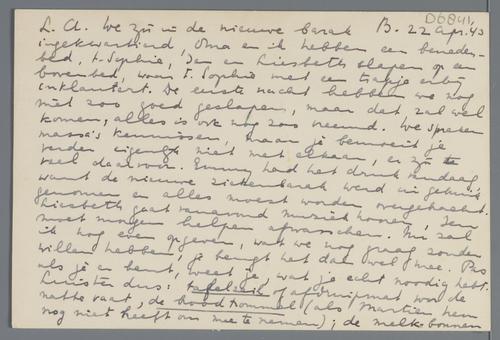 D6841
L. A. We zijn in de nieuwe barak B. 22 Apr. 43
ingekwartierd, Oma en ik hebben een beneden-
bed, t. Sophie, Jen en Liesbeth slapen op een
bovenbed, waar t. Sophie met een trapje erbij
inklautert. De eerste nacht hebben we nog
niet zoo goed geslapen, maar dat zal wel
komen, alles is ook nog zoo vreemd. We spreken
massa's kennissen, maar je bemoeit je
verder eigenlijk niet met elkaar, er zijn te
veel daarvoor. Emmy had het druk vandaag
want de nieuwe ziekenbarak werd in gebruik
genomen en alles moest worden overgebracht.
Liesbeth gaat vanavond muziek hooren, Jen
moet morgen helpen afwasschen. Nu zal
ik nog even opgeven, wat we nog graag zouden
willen hebben, je brengt het dan wel mee. Pas
als je er bent, weet je, wat je echt noodig hebt.
Luister dus: tafelzeil of afdruipmat voor de
natte vaat, de broodtrommel (als Martien hem
nog niet heeft om mee te nemen); de melkbonnen